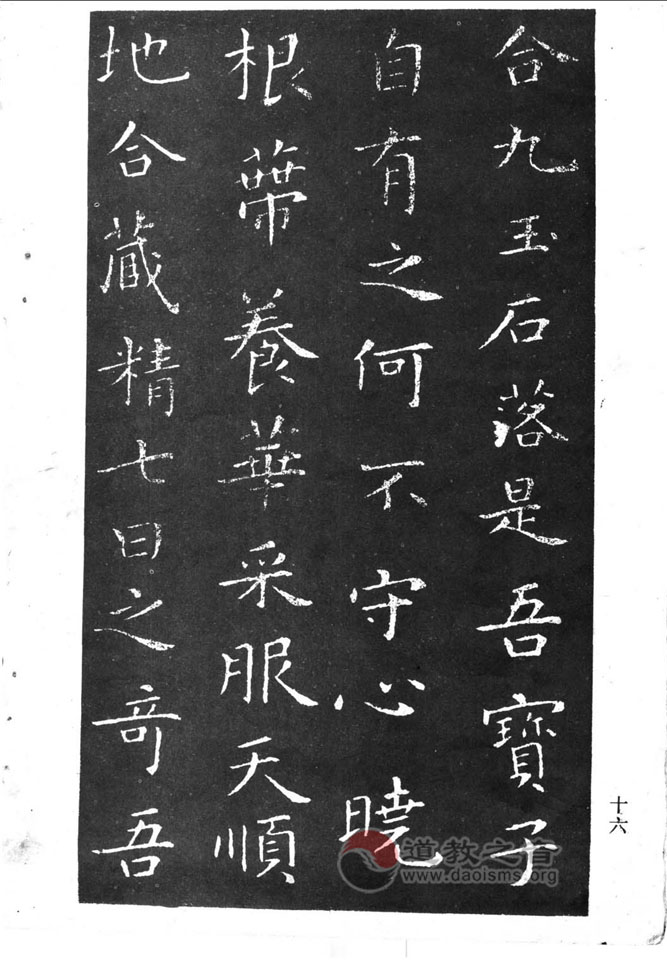 合九玉石落是吾寶子
自有之何不守心曉
根蔕養華采服天順
地合藏精七日之奇吾
十六
道教之音
www.daoisms.org